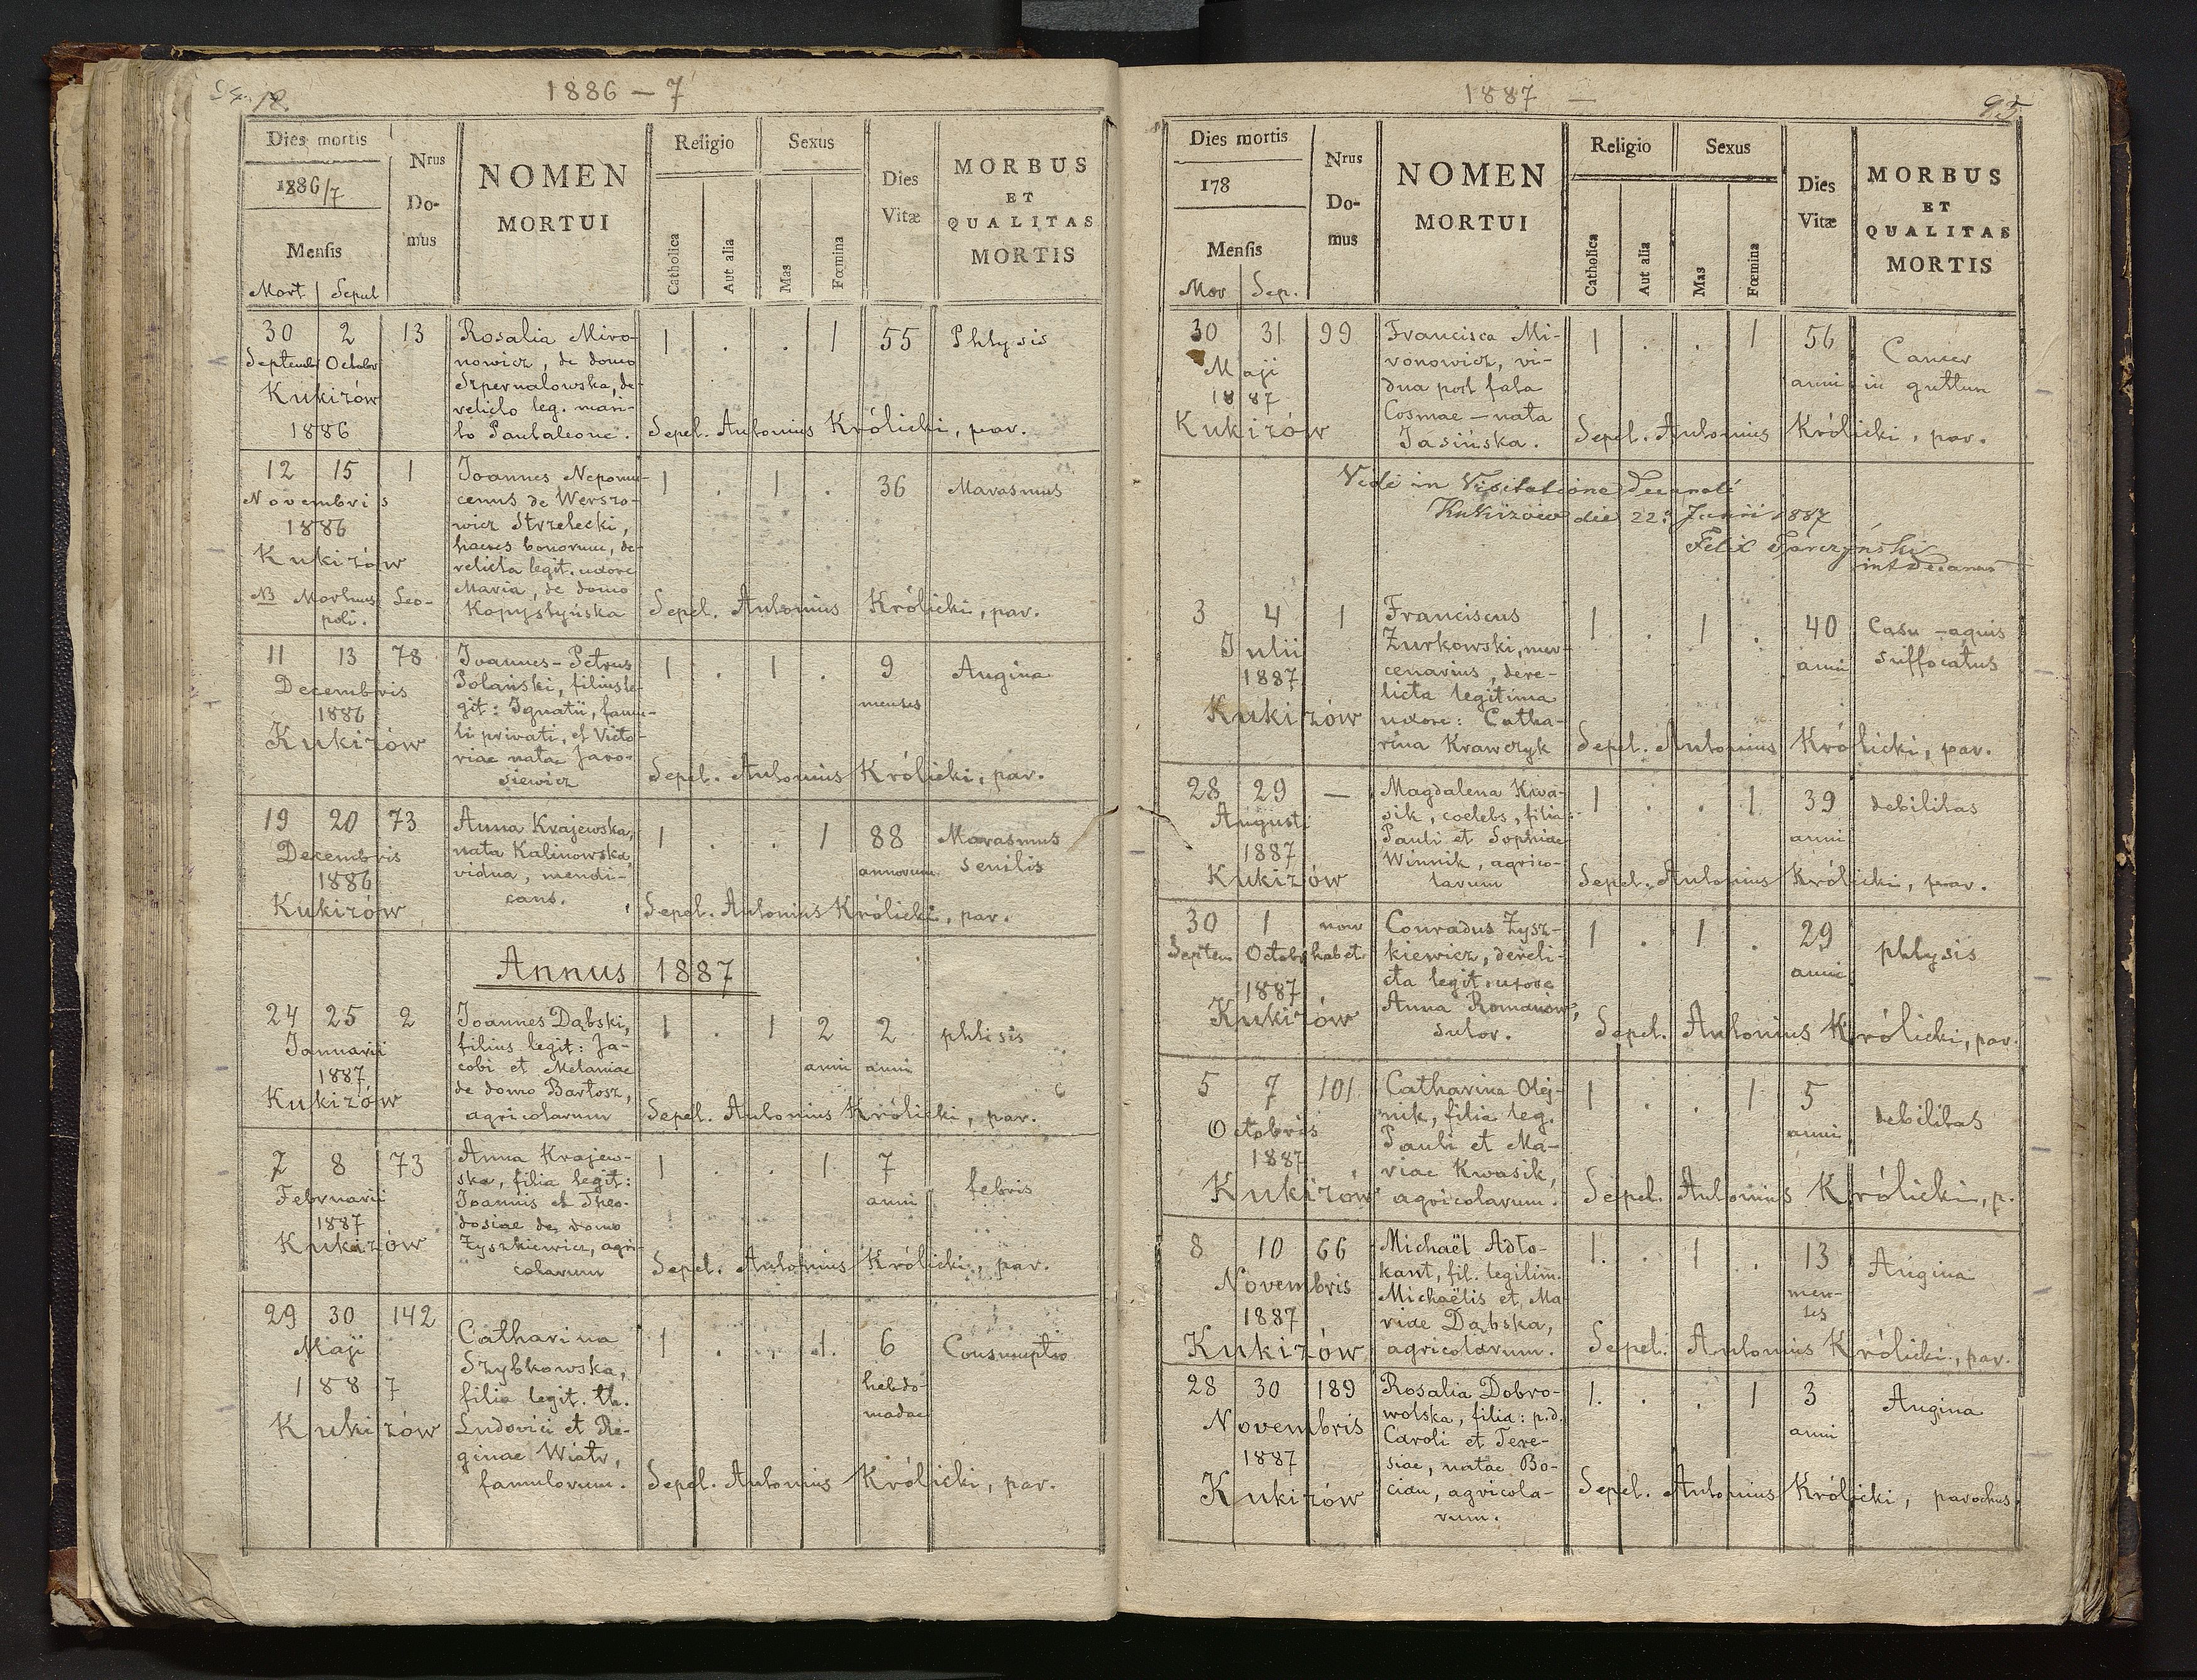 18.
1886 — 7
Dies mortis
1886/7
Mensis
Mort Sepul
Nrus
Do-
mus
NOMEN
MORTUI
Religio
Catholica
Aut alia
Sexus
Mas
Fœmina
Dies
Vitæ
MORBUS
ET
QUALITAS
MORTIS
30 2 13 Rosalia Miro- 1 . . 1 55 Phtysis
Septemb Octobr nowicz, de domo
Kukizów Szpernalowska, de-
relicto leg. mari-
1886 to Pantaleone. Sepel. Antonius Królicki, par.
12 15 1 Joannes Nepomu- 1 . 1 . 36 Marasmus
Novembris cenus de Werszo-
1886 wicz Strzelecki,
haeres bonorum, de-
Kukizów relicta legit. uxore
Maria, de domo
NB Mortuus Leo- Kopystyńska Sepel. Antonius Królicki, par.
poli.
11 13 78 Joannes-Petrus 1 . 1 . 9 Angina
Decembris Polański, filius le-
menses
1886 git: Ignatii, famu-
Kukizów li privati, et Victo-
riae natae Jaro-
siewicz Sepel. Antonius Królicki, par.
19 20 73 Anna Krajewska, 1 . . 1 88 Marasmus
Decembris nata Kalinowska, annorum senilis
1886 vidua, mendi-
Kukizów cans. Sepel. Antonius Królicki, par.
Annus 1887
24 25 2 Joannes Dąbski, 1 . 1 2 2 phtisis
Januarii filius legit: Ja-
1887 cobi et Melaniae anni anni
Kukizów de domo Bartosz,
agricolarum Sepel. Antonius Królicki, par.
7 8 73 Anna Krajew- 1 . . 1 7 febris
Februarii ska, filia legit: anni
1887 Joannis et Theo-
dosiae de domo
Kukizów Zyszkiewicz, agri-
colarum Sepel. Antonius Królicki, par.
29 30 142 Catharina 1 . . 1. 6 Consumptio
Maji Szybkowska, hebdo-
1887 filia legit. th. madae
Kukizów Ludovici et Re-
ginae Wiatr,
famulorum. Sepel. Antonius Królicki, par.
1887 —
95
Dies mortis
178
Mensis
Mor Sep.
Nrus
Do-
mus
NOMEN
MORTUI
Religio
Catholica
Aut alia
Sexus
Mas
Fœmina
Dies
Vitæ
MORBUS
ET
QUALITAS
MORTIS
30 31 99 Francisca Mi- 1 . . 1 56 Cancer
Maji ronowicz, vi- anni in guttur
1887 dua post fata
Kukizów Cosmae — nata
Jasińska. Sepel. Antonius Królicki, par.
Vidi in Visitatione Decanali
Kukizów die 22. Junii 1887
Felix
3 4 1 Franciscus 1 . 1 . 40 Casu - aquis
Julii Zurkowski, mer- anni suffocatus
1887 cenarius, dere-
licta legitima
Kukizów uxore: Catha-
rina Krawczyk Sepel. Antonius Królicki, par.
28 29 — Magdalena Kwa- 1 . . 1 39 debilitas
Augusti sik, coelebs, filia: anni
1887 Pauli et Sophiae
Kukizów Winnik, agrico-
larum Sepel. Antonius Królicki, par.
30 1 non Conradus Zysz- 1 . 1 . 29 phtysis
Septem. Octobr habet kiewicz, dereli- anni
1887 cta legit. uxore
Kukizów Anna Romanów,
sutor. Sepel. Antonius Królicki, par.
5 7 101 Catharina Olej- 1 . . 1 5 debilitas
Octobris nik, filia leg. anni
1887 Pauli et Ma-
riae Kwasik,
Kukizów agricolarum. Sepel. Antonius Królicki, p.
8 10 66 Michaël Adto- 1. . 1 . 13 Angina
Novembris kant, fil. legitim. men-
ses
1887 Michaëlis et Ma-
riae Dąbska,
Kukizów agricolarum. Sepel. Antonius Królicki, par.
28 30 189 Rosalia Dobro- 1. . . 1 3 Angina
Novembris wolska, filia: p.d. anni
1887 Caroli et Tere-
siae, natae Bo-
Kukizów cian, agricola-
rum. Sepel. Antonius Królicki, parochus.